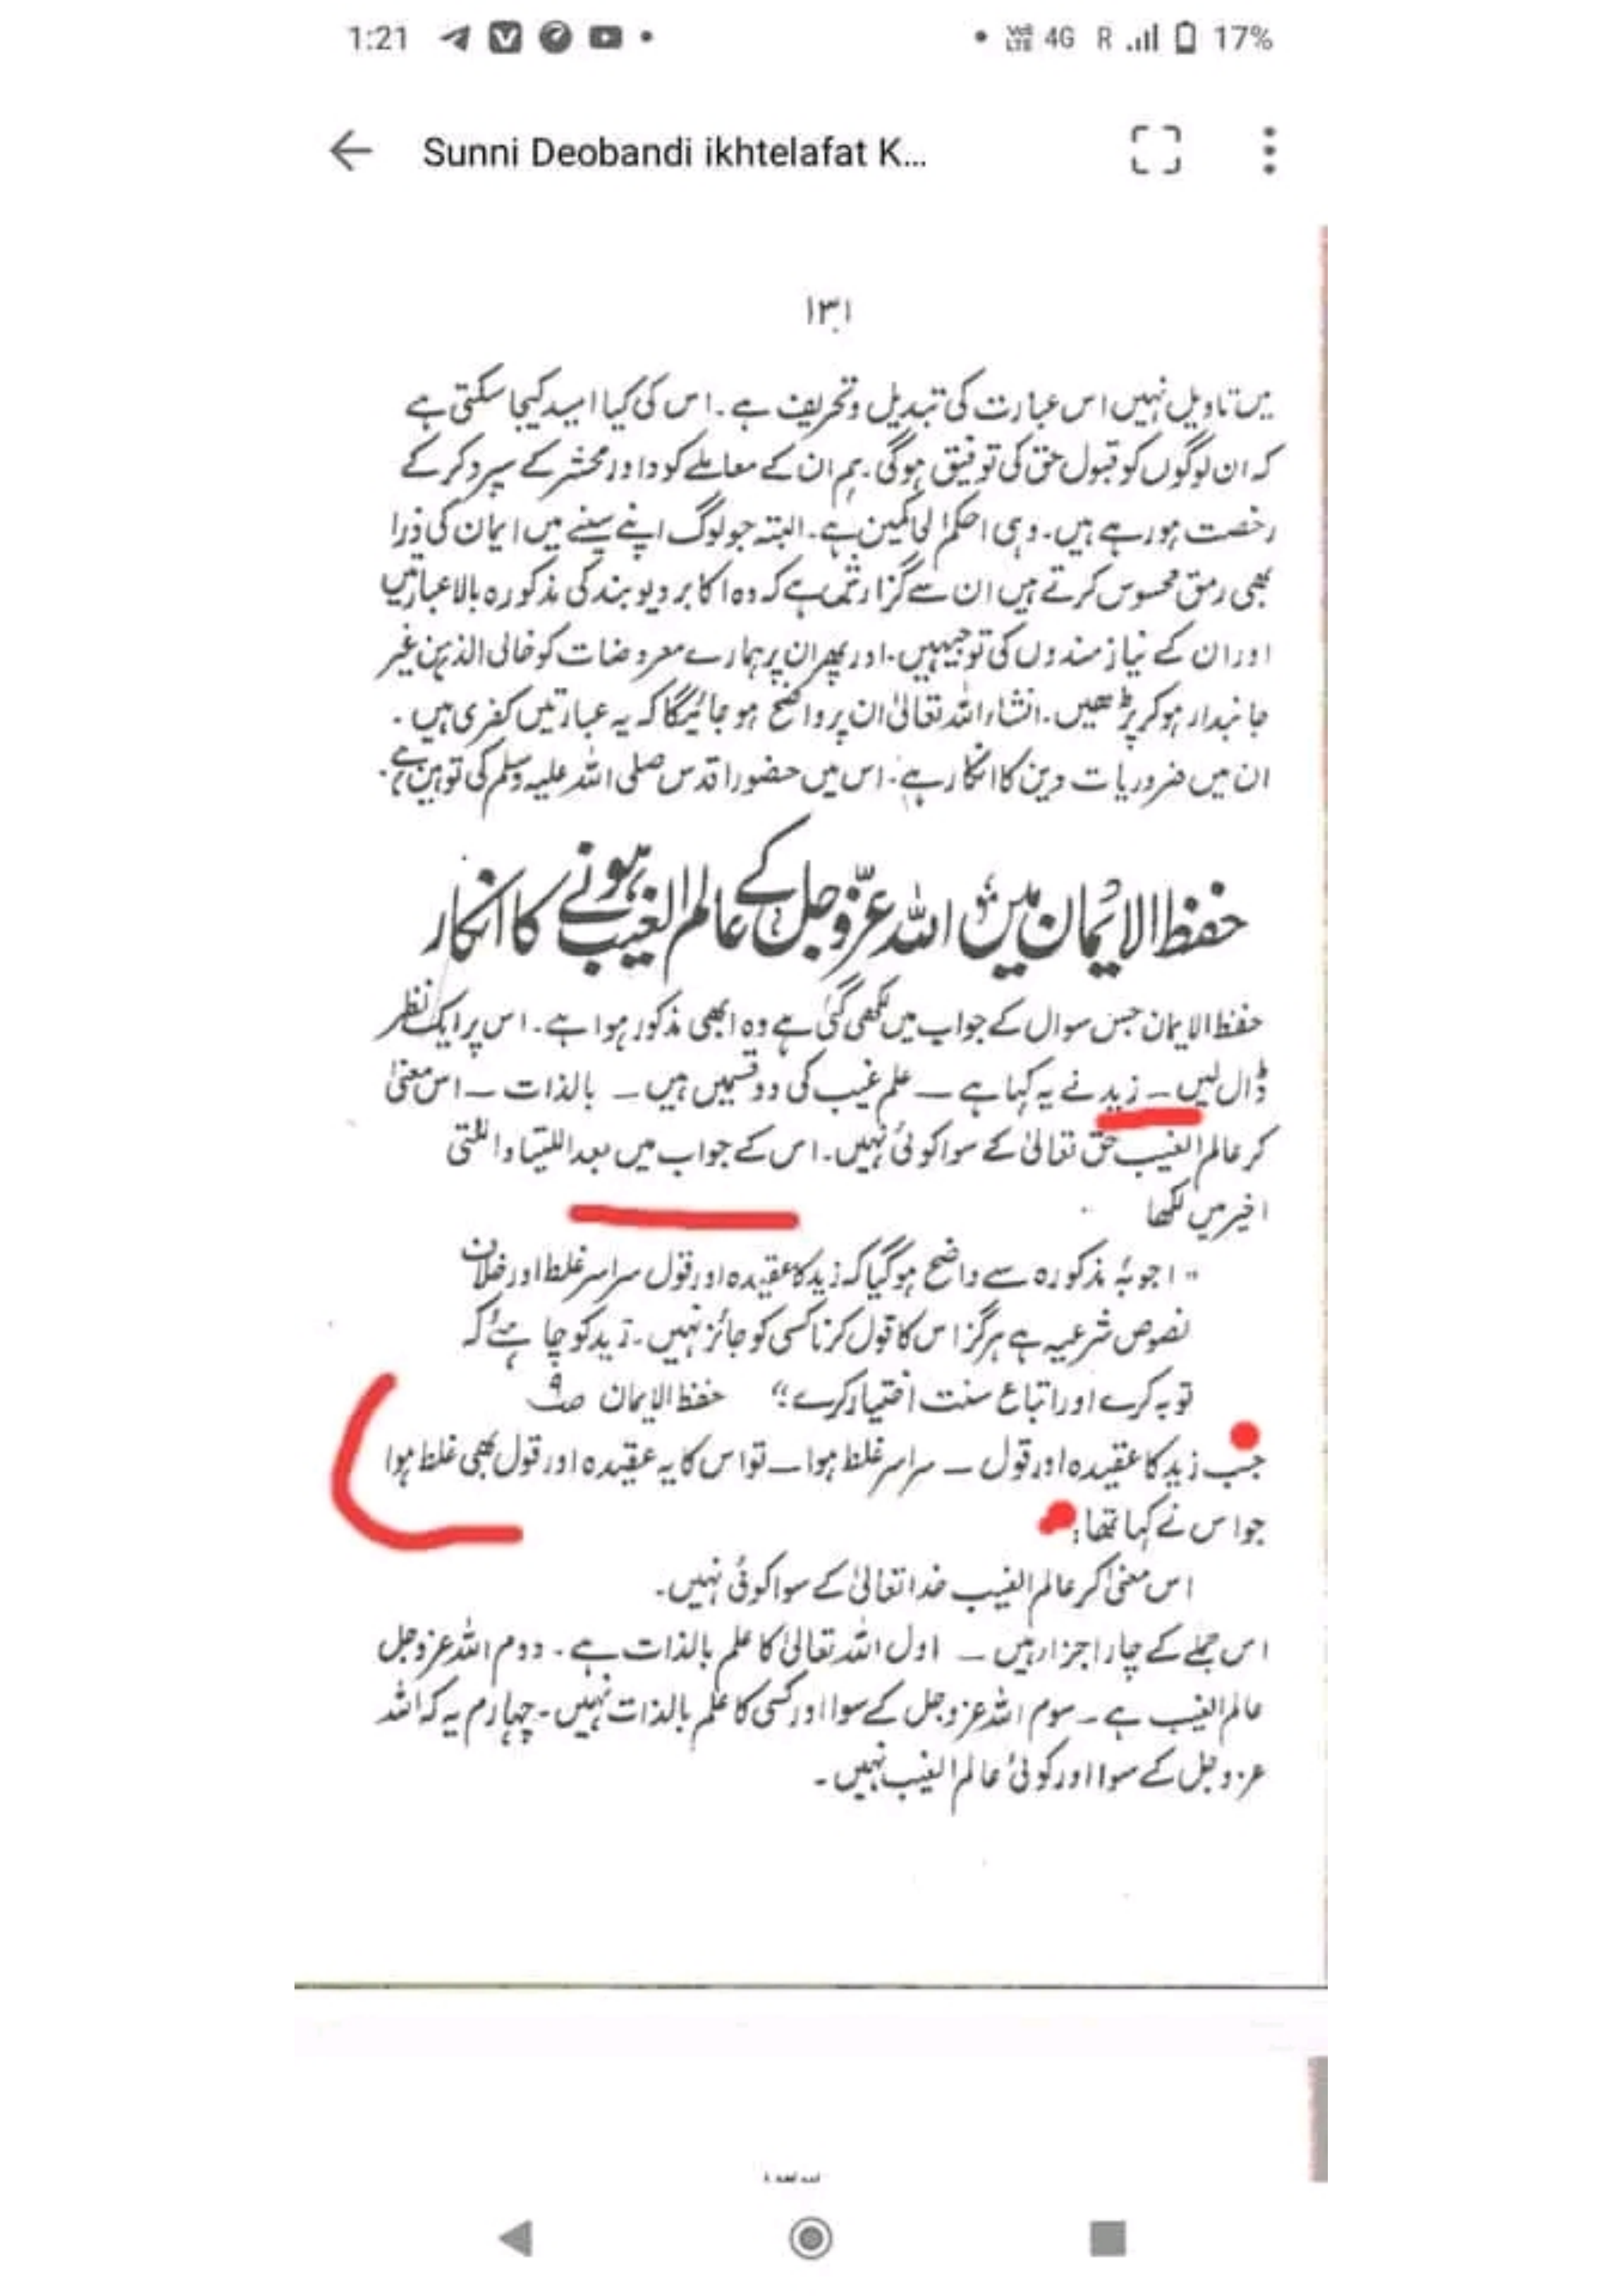 1:21
VoI LTE 4G R 17%
Sunni Deobandi ikhtelafat K...
١٣١
میں تاویل نہیں اس عبارت کی تبدیل وتحریف ہے۔ اس کی کیا امید کیجا سکتی ہے
کہ ان لوگوں کو قبول حق کی توفیق ہوگی۔ ہم ان کے معاملے کو داور محشر کے سپرد کر کے
رخصت ہو رہے ہیں۔ وہی احکم الحاکمین ہے۔ البتہ جو لوگ اپنے سینے میں ایمان کی ذرا
بھی رمق محسوس کرتے ہیں ان سے گزارش ہے کہ وہ اکابر دیوبند کی مذکورہ بالا عبارتیں
اور ان کے نیاز مندوں کی توجیہیں۔ اور پھر ان پر ہمارے معروضات کو خالی الذہن غیر
جانبدار ہو کر پڑھیں۔ انشاء اللہ تعالیٰ ان پر واضح ہو جائیگا کہ یہ عبارتیں کفری ہیں۔
ان میں ضروریات دین کا انکار ہے۔ اس میں حضور اقدس صلی اللہ علیہ وسلم کی توہین ہے۔
حفظ الایمان میں اللہ عزّوجل کے عالم الغیب ہونے کا انکار
حفظ الایمان جس سوال کے جواب میں لکھی گئی ہے وہ ابھی مذکور ہوا ہے۔ اس پر ایک نظر
ڈال لیں ــ زید نے یہ کہا ہے ــ علم غیب کی دو قسمیں ہیں ــ بالذات ــ اس معنیٰ
کر عالم الغیب حق تعالیٰ کے سوا کوئی نہیں۔ اس کے جواب میں بعد اللتیا والتی
اخیر میں لکھا
" اجوبۂ مذکورہ سے واضح ہو گیا کہ زید کا عقیدہ اور قول سراسر غلط اور خلاف
نصوص شرعیہ ہے ہرگز اس کا قول کرنا کسی کو جائز نہیں۔ زید کو چاہئے کہ
توبہ کرے اور اتباع سنت اختیار کرے" حفظ الایمان ص۹
جب زید کا عقیدہ اور قول ــ سراسر غلط ہوا ــ تو اس کا یہ عقیدہ اور قول بھی غلط ہوا
جو اس نے کہا تھا:
اس معنیٰ کر عالم الغیب خدا تعالیٰ کے سوا کوئی نہیں۔
اس جملے کے چار اجزاء ہیں ــ اول اللہ تعالیٰ کا علم بالذات ہے۔ دوم اللہ عزوجل
عالم الغیب ہے ــ سوم اللہ عزوجل کے سوا اور کسی کا علم بالذات نہیں۔ چہارم یہ کہ اللہ
عزوجل کے سوا اور کوئی عالم الغیب نہیں۔